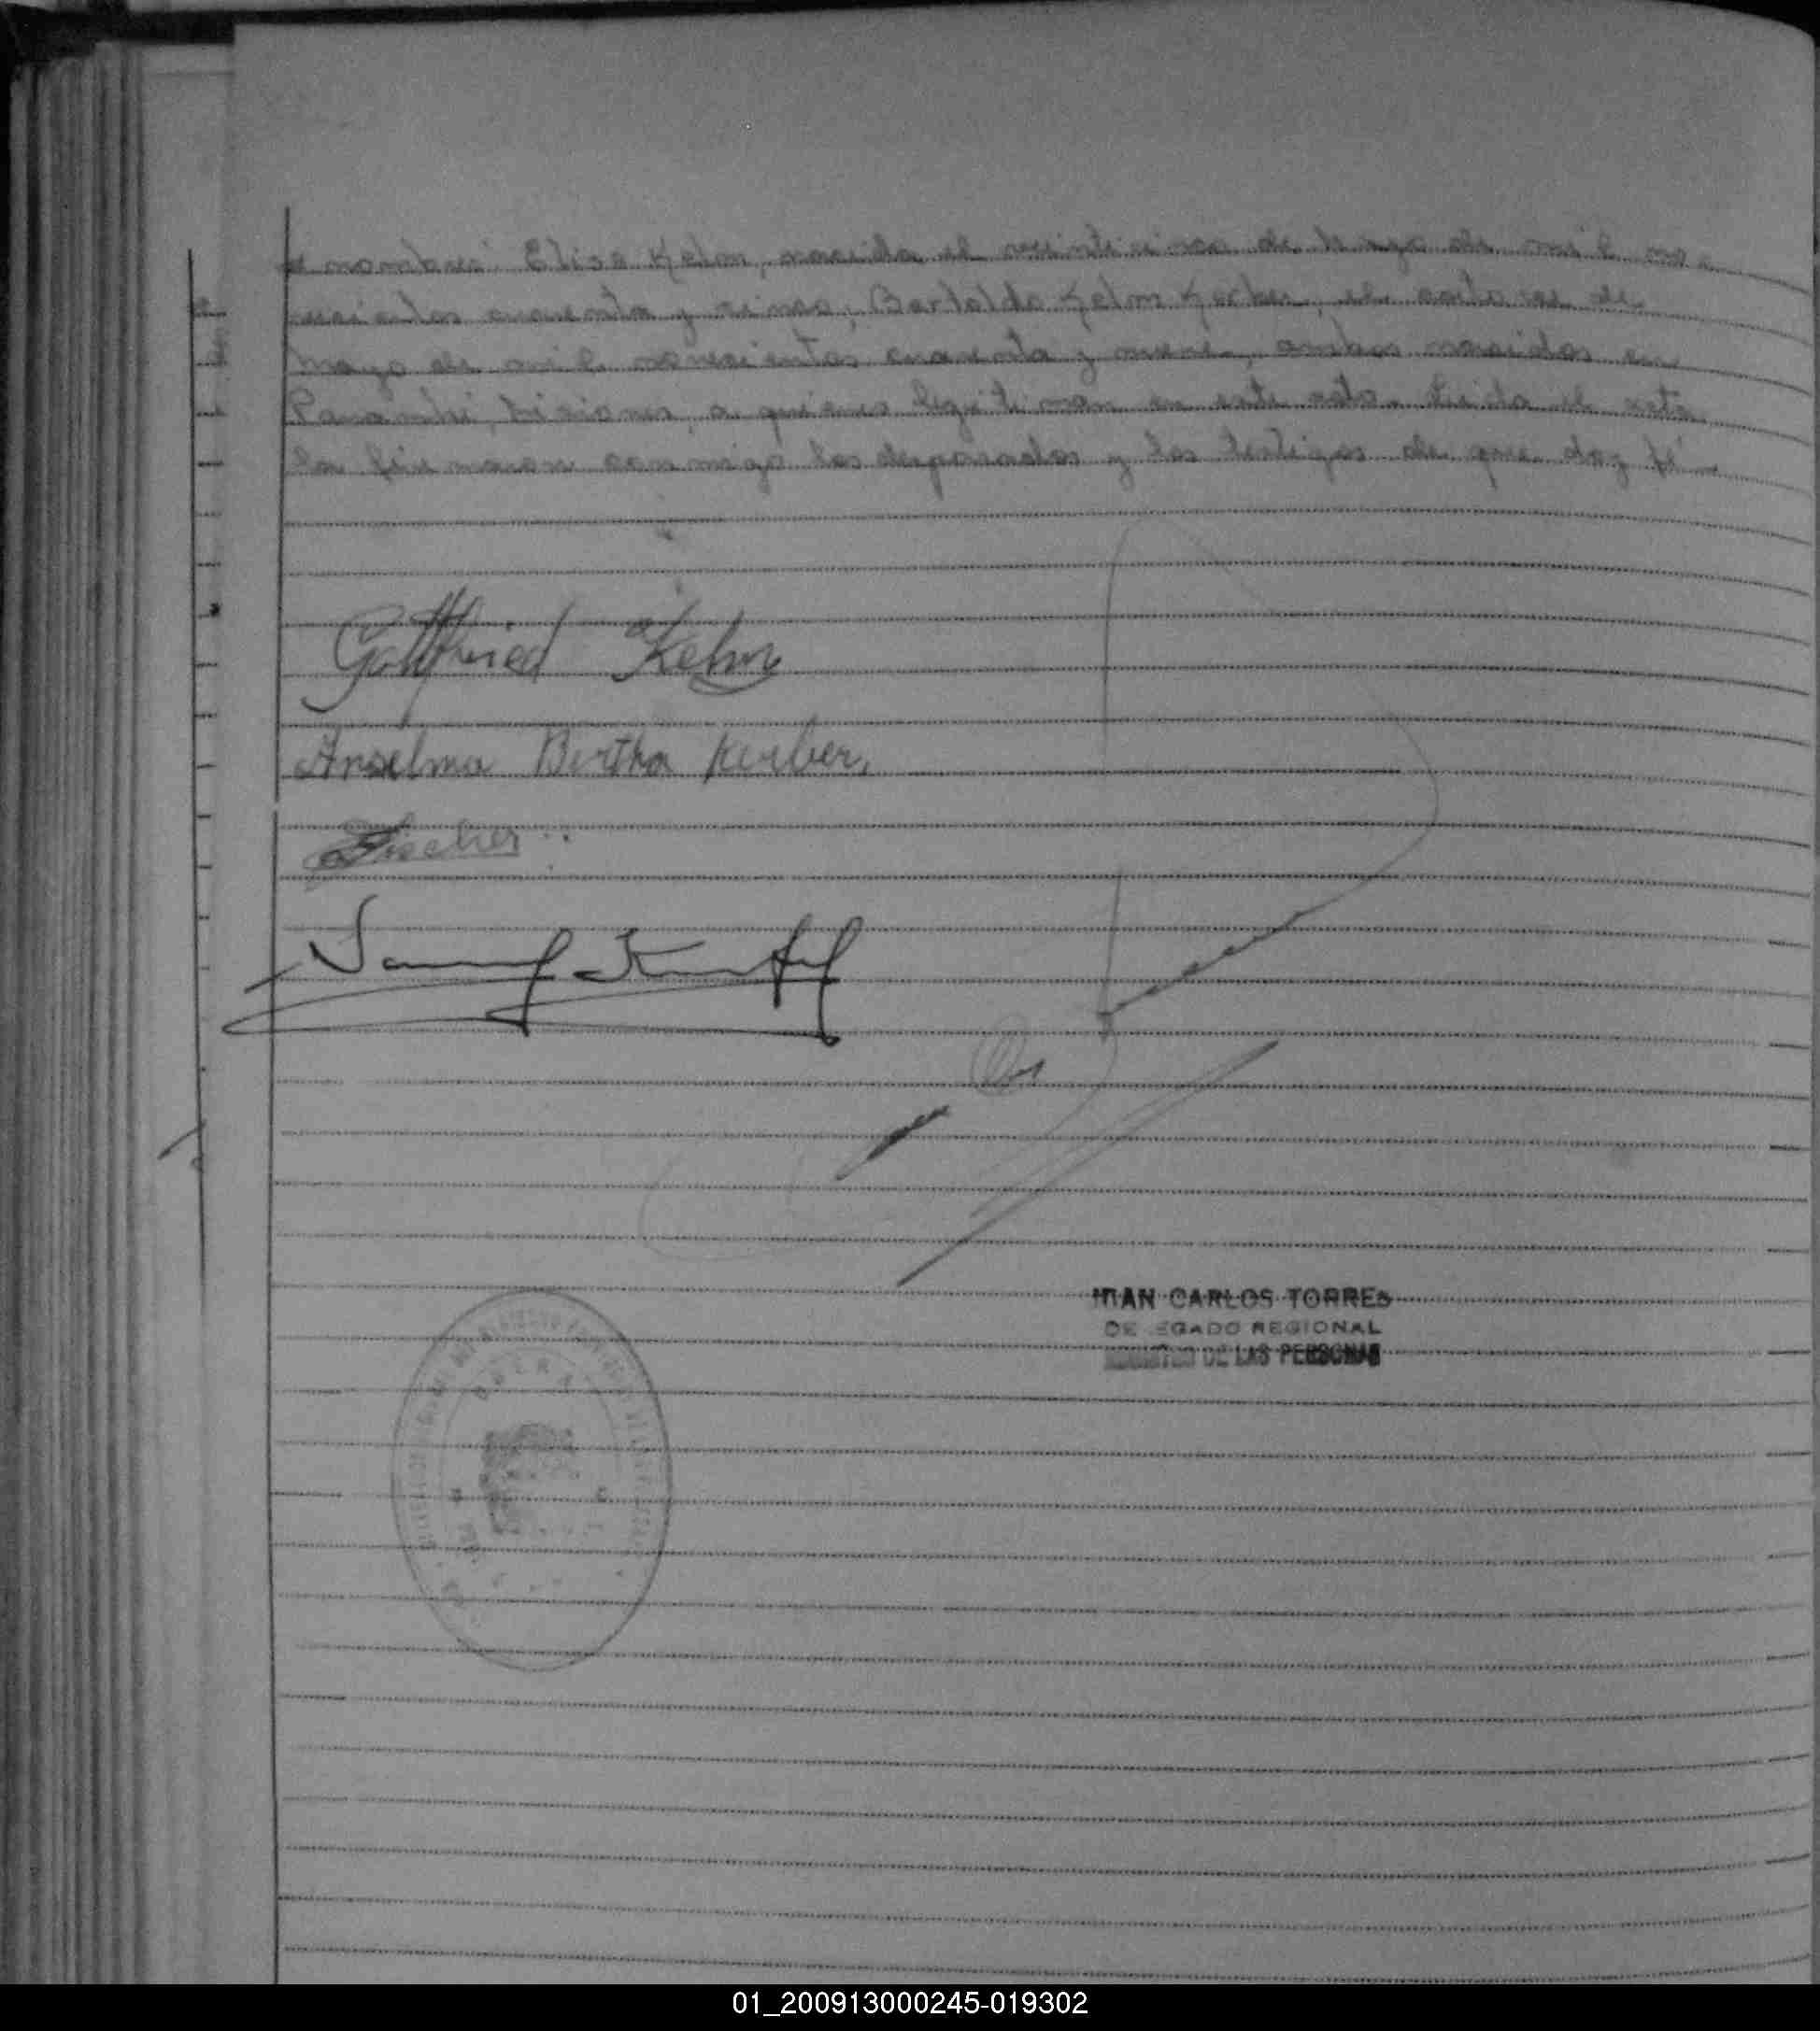 nombre: Elisa Kelm, nacida el veinticinco de Mayo de mil no-
vecientos cuarenta y cinco; Bertoldo Kelm Kerber, el catorce de
Mayo de mil novecientos cuarenta y nueve, ambos nacidos en
Panambí, Misiones, a quienes legitiman en este acto. Leida el acta
la firmaron conmigo los desposados y los testigos de que doy fé
Gottfried Kelm
Anselma Bertha Kerber,
Fischer
JUAN CARLOS TORRES
DELEGADO REGIONAL
DE LAS PERSONAS
OBERA
01_200913000245-019302